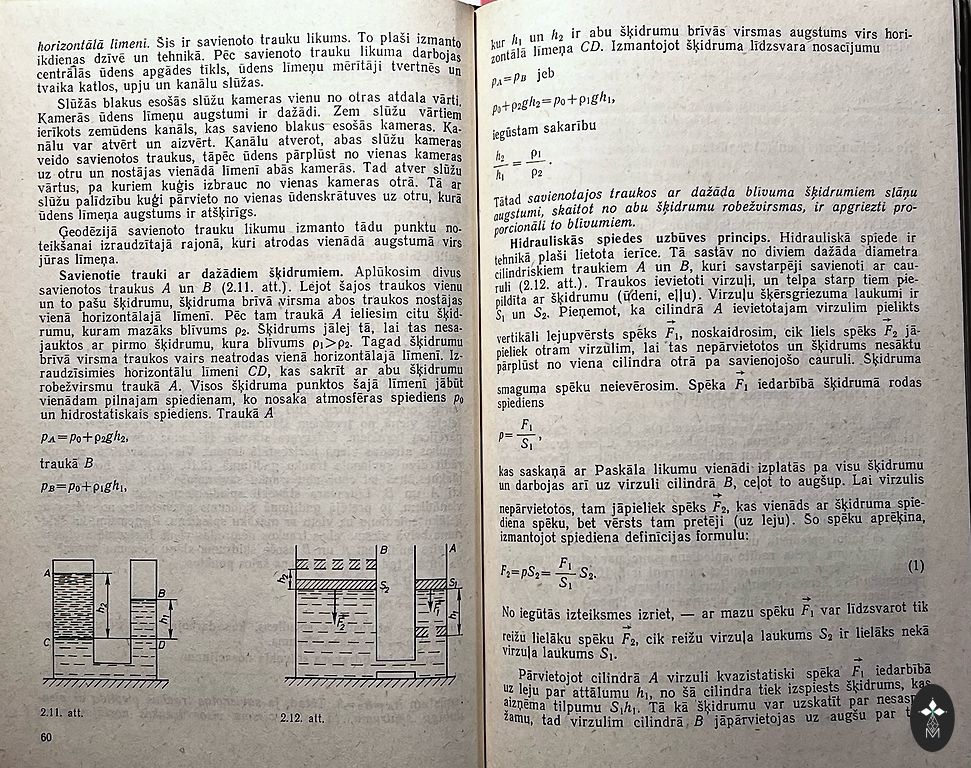 horizontālā līmenī. Šis ir savienoto trauku likums. To plaši izmanto
ikdienas dzīvē un tehnikā. Pēc savienoto trauku likuma darbojas
centrālās ūdens apgādes tīkls, ūdens līmeņu mērītāji tvertnēs un
tvaika katlos, upju un kanālu slūžas.
Slūžās blakus esošās slūžu kameras vienu no otras atdala vārti.
Kamerās ūdens līmeņu augstumi ir dažādi. Zem slūžu vārtiem
ierīkots zemūdens kanāls, kas savieno blakus esošās kameras. Ka-
nālu var atvērt un aizvērt. Kanālu atverot, abas slūžu kameras
veido savienotos traukus, tāpēc ūdens pārplūst no vienas kameras
uz otru un nostājas vienādā līmenī abās kamerās. Tad atver slūžu
vārtus, pa kuriem kuģis izbrauc no vienas kameras otrā. Tā ar
slūžu palīdzību kuģi pārvieto no vienas ūdenskrātuves uz otru, kurā
ūdens līmeņa augstums ir atšķirīgs.
Ģeodēzijā savienoto trauku likumu izmanto tādu punktu no-
teikšanai izraudzītajā rajonā, kuri atrodas vienādā augstumā virs
jūras līmeņa.
Savienotie trauki ar dažādiem šķidrumiem. Aplūkosim divus
savienotos traukus A un B (2.11. att.). Lejot šajos traukos vienu
un to pašu šķidrumu, šķidruma brīvā virsma abos traukos nostājas
vienā horizontālajā līmenī. Pēc tam traukā A ieliesim citu šķid-
rumu, kuram mazāks blīvums ρ₂. Šķidrums jālej tā, lai tas nesa-
jauktos ar pirmo šķidrumu, kura blīvums ρ₁>ρ₂. Tagad šķidrumu
brīvā virsma traukos vairs neatrodas vienā horizontālajā līmenī. Iz-
raudzīsimies horizontālu līmeni CD, kas sakrīt ar abu šķidrumu
robežvirsmu traukā A. Visos šķidruma punktos šajā līmenī jābūt
vienādam pilnajam spiedienam, ko nosaka atmosfēras spiediens p₀
un hidrostatiskais spiediens. Traukā A
p_A=p₀+ρ₂gh₂,
traukā B
p_B=p₀+ρ₁gh₁,
A
h₂
B
h₁
C
D
2.11. att.
B
A
h₂
S₂
S₁
F₂
F₁
h₁
2.12. att.
60
kur h₁ un h₂ ir abu šķidrumu brīvās virsmas augstums virs hori-
zontālā līmeņa CD. Izmantojot šķidruma līdzsvara nosacījumu
p_A=p_B jeb
p₀+ρ₂gh₂=p₀+ρ₁gh₁,
iegūstam sakarību
h₂/h₁ = ρ₁/ρ₂.
Tātad savienotajos traukos ar dažāda blīvuma šķidrumiem slāņu
augstumi, skaitot no abu šķidrumu robežvirsmas, ir apgriezti pro-
porcionāli to blīvumiem.
Hidrauliskās spiedes uzbūves princips. Hidrauliskā spiede ir
tehnikā plaši lietota ierīce. Tā sastāv no diviem dažāda diametra
cilindriskiem traukiem A un B, kuri savstarpēji savienoti ar cau-
ruli (2.12. att.). Traukos ievietoti virzuļi, un telpa starp tiem pie-
pildīta ar šķidrumu (ūdeni, eļļu). Virzuļu šķērsgriezuma laukumi ir
S₁ un S₂. Pieņemot, ka cilindrā A ievietotajam virzulim pielikts
vertikāli lejupvērsts spēks F⃗₁, noskaidrosim, cik liels spēks F⃗₂ jā-
pieliek otram virzulim, lai tas nepārvietotos un šķidrums nesāktu
pārplūst no viena cilindra otrā pa savienojošo cauruli. Šķidruma
smaguma spēku neievērosim. Spēka F⃗₁ iedarbībā šķidrumā rodas
spiediens
p= F₁/S₁,
kas saskaņā ar Paskāla likumu vienādi izplatās pa visu šķidrumu
un darbojas arī uz virzuli cilindrā B, ceļot to augšup. Lai virzulis
nepārvietotos, tam jāpieliek spēks F⃗₂, kas vienāds ar šķidruma spie-
diena spēku, bet vērsts tam pretēji (uz leju). Šo spēku aprēķina,
izmantojot spiediena definīcijas formulu:
F₂=pS₂= F₁/S₁ S₂. (1)
No iegūtās izteiksmes izriet, — ar mazu spēku F⃗₁ var līdzsvarot tik
reižu lielāku spēku F⃗₂, cik reižu virzuļa laukums S₂ ir lielāks nekā
virzuļa laukums S₁.
Pārvietojot cilindrā A virzuli kvazistatiski spēka F⃗₁ iedarbībā
uz leju par attālumu h₁, no šā cilindra tiek izspiests šķidrums, kas
aizņēma tilpumu S₁h₁. Tā kā šķidrumu var uzskatīt par
žamu, tad virzulim cilindrā B jāpārvietojas uz augšu par
M